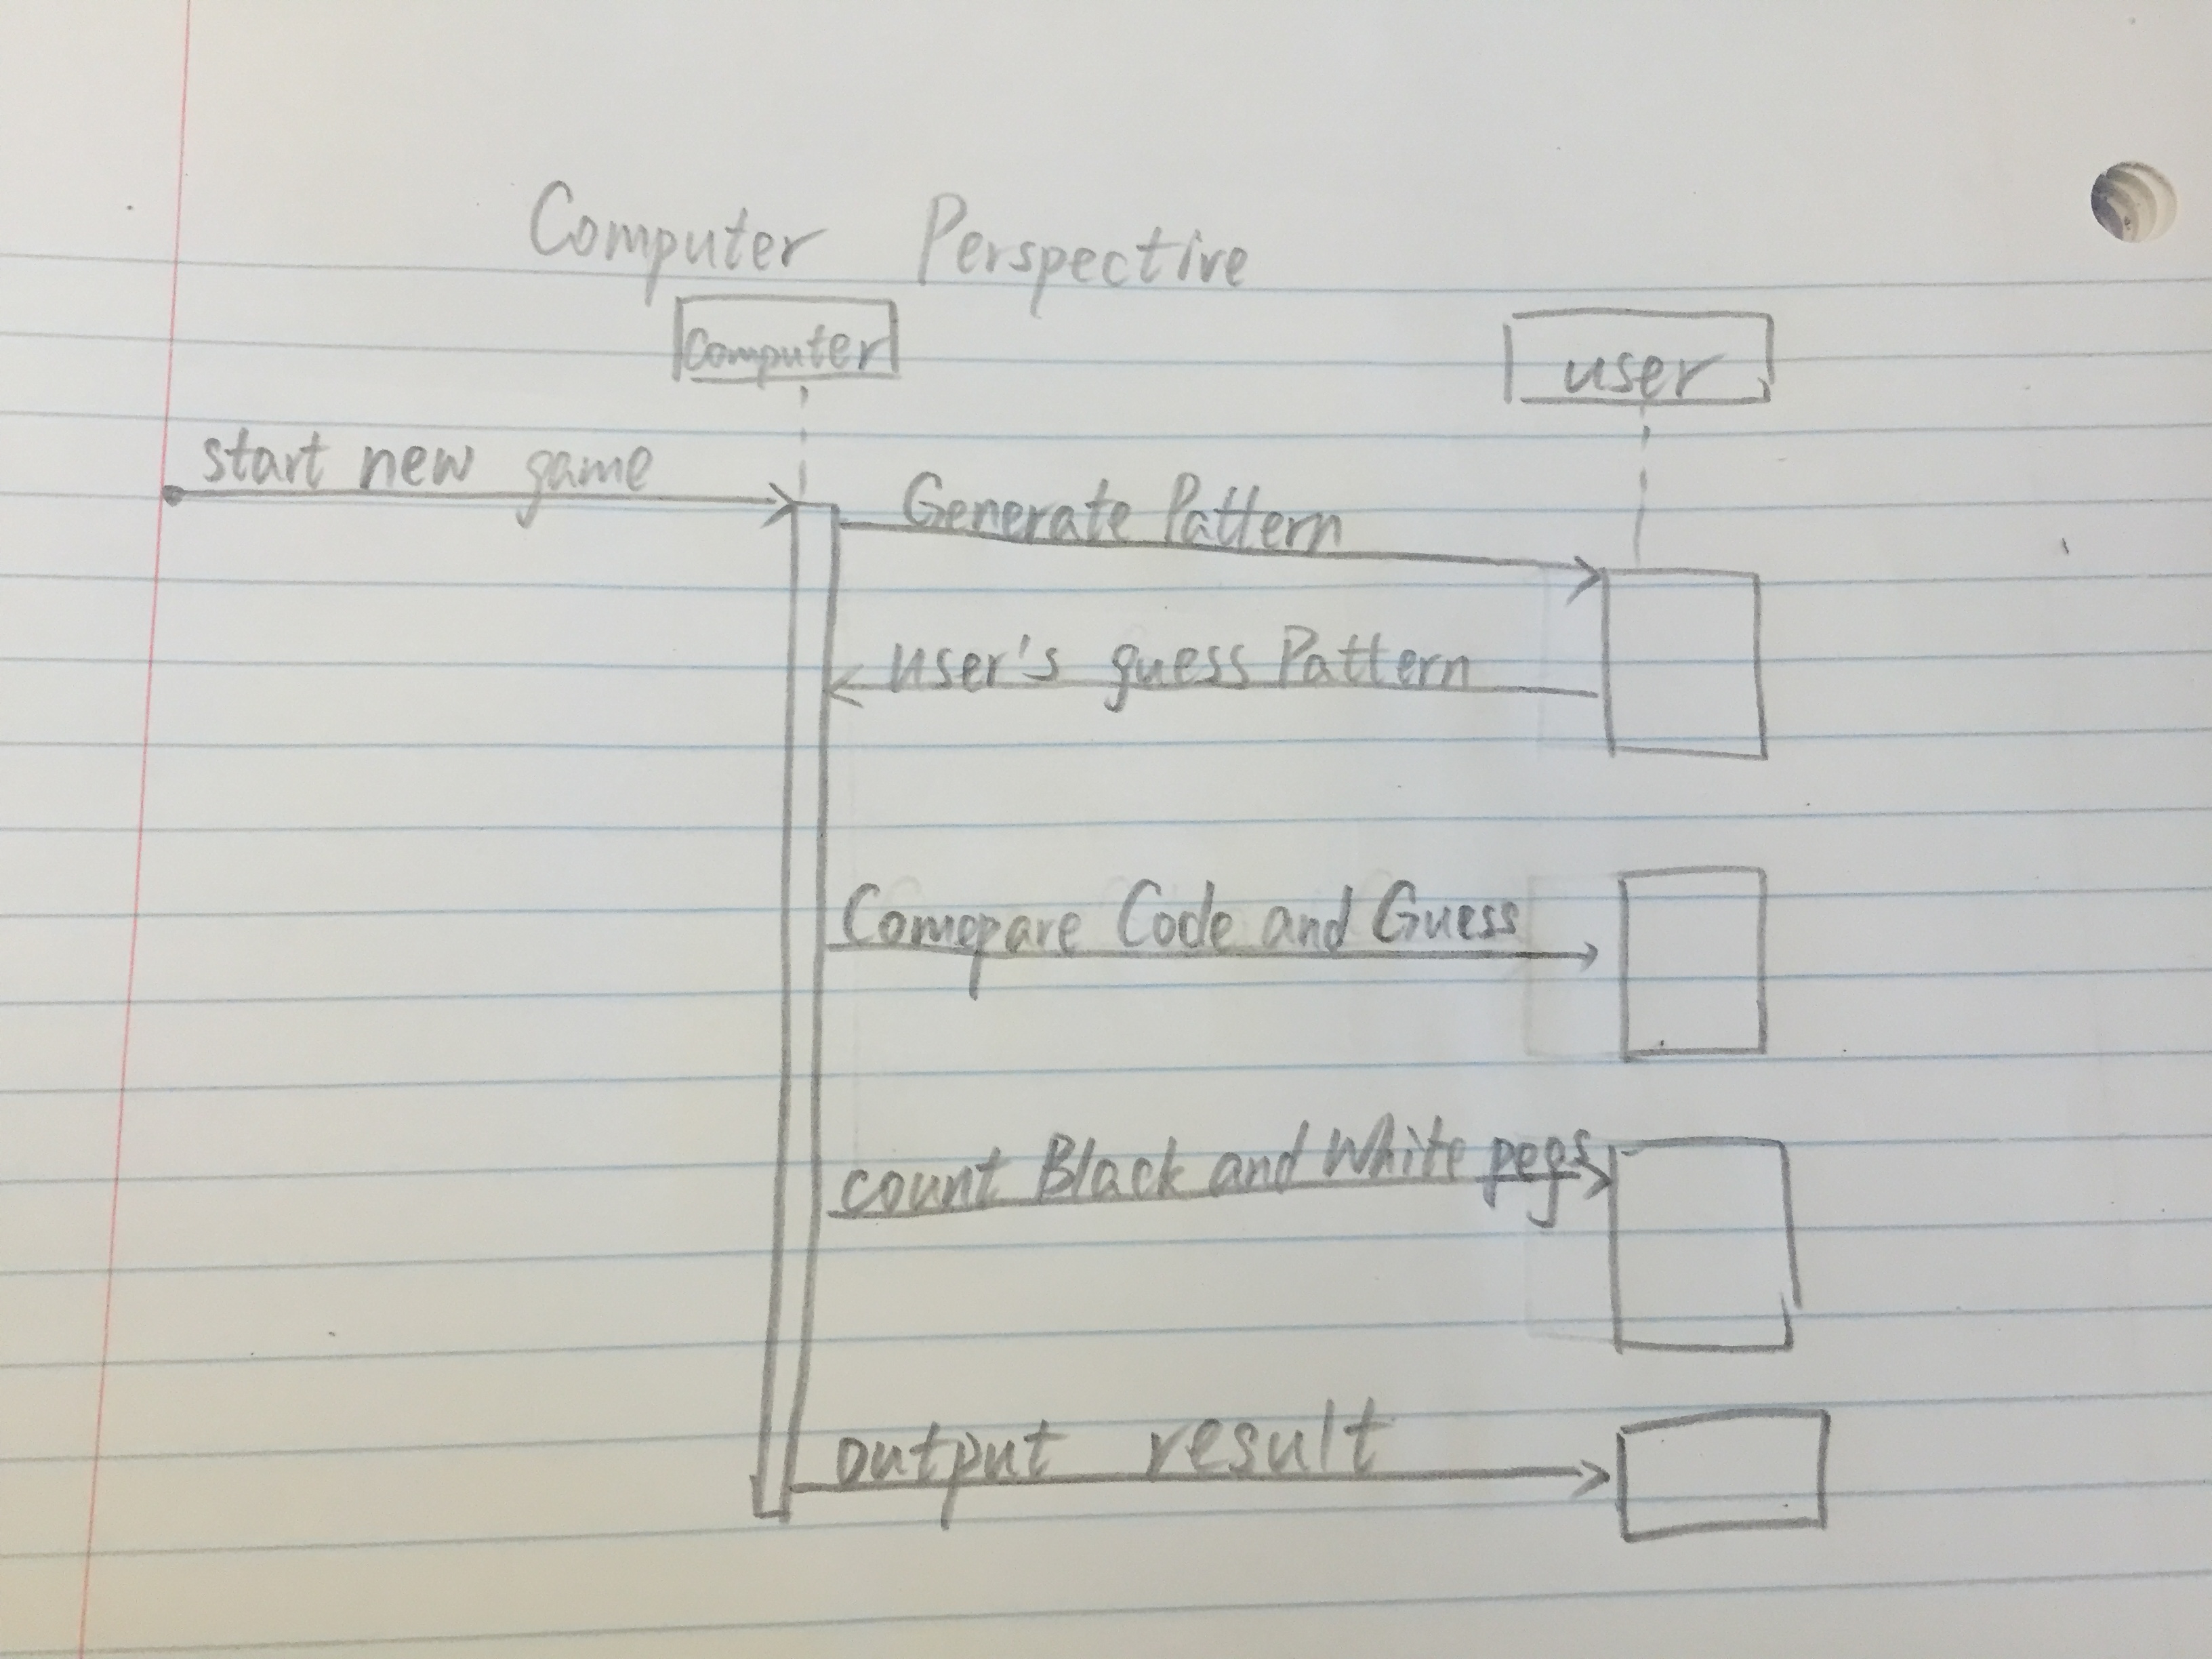 Computer Perspective
Computer
user
start new game
Generate Pattern
user's guess Pattern
Compare Code and Guess
count Black and White pegs
output result